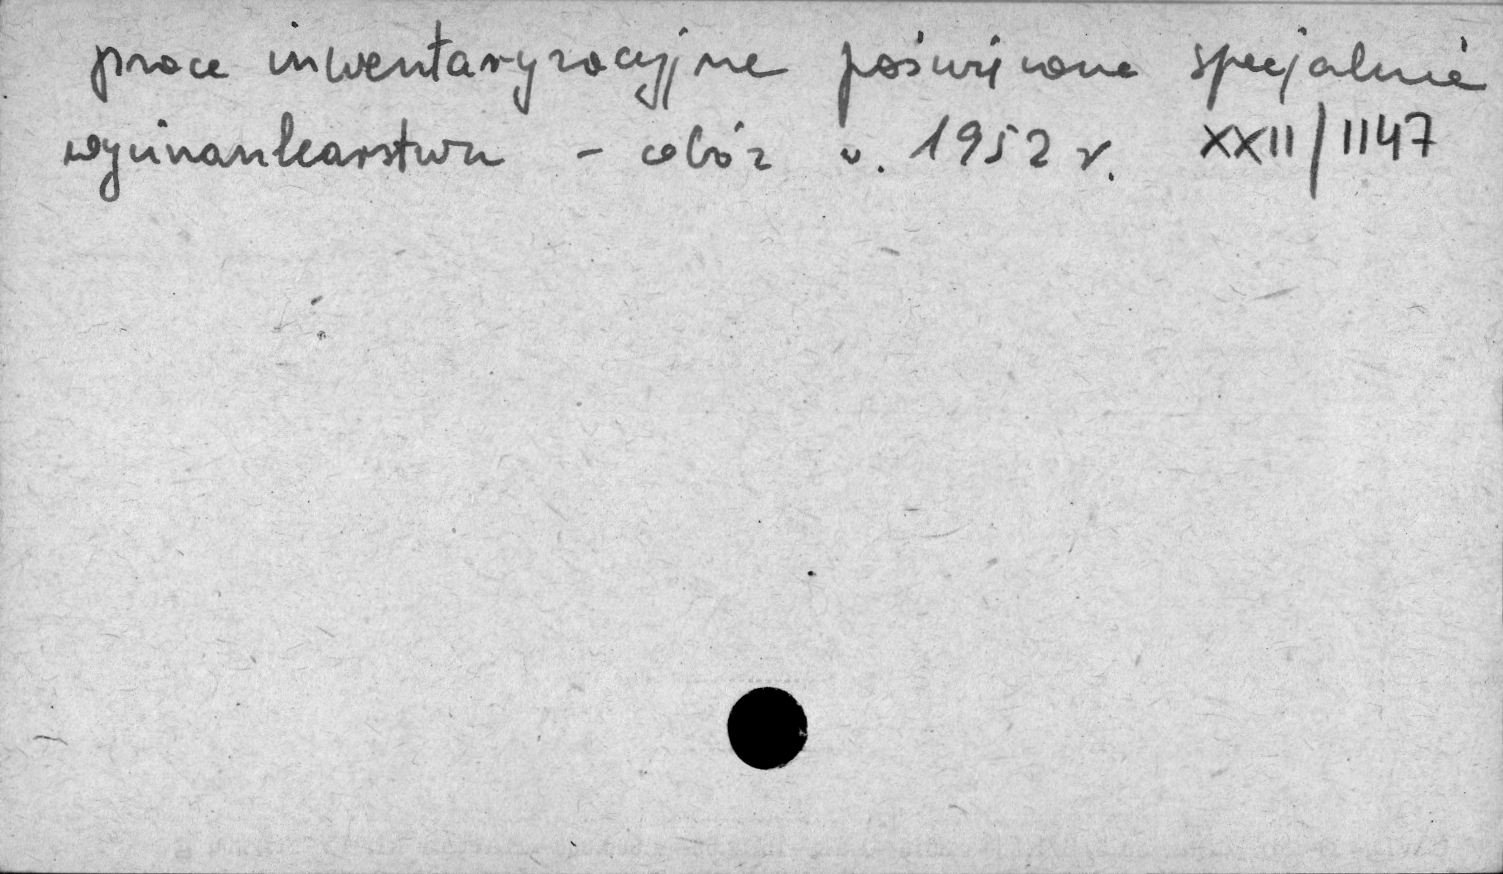 prace inwentaryzacyjne poświęcone specjalnie
wycinankarstwu - obóz w. 1952 r. XXII/1147